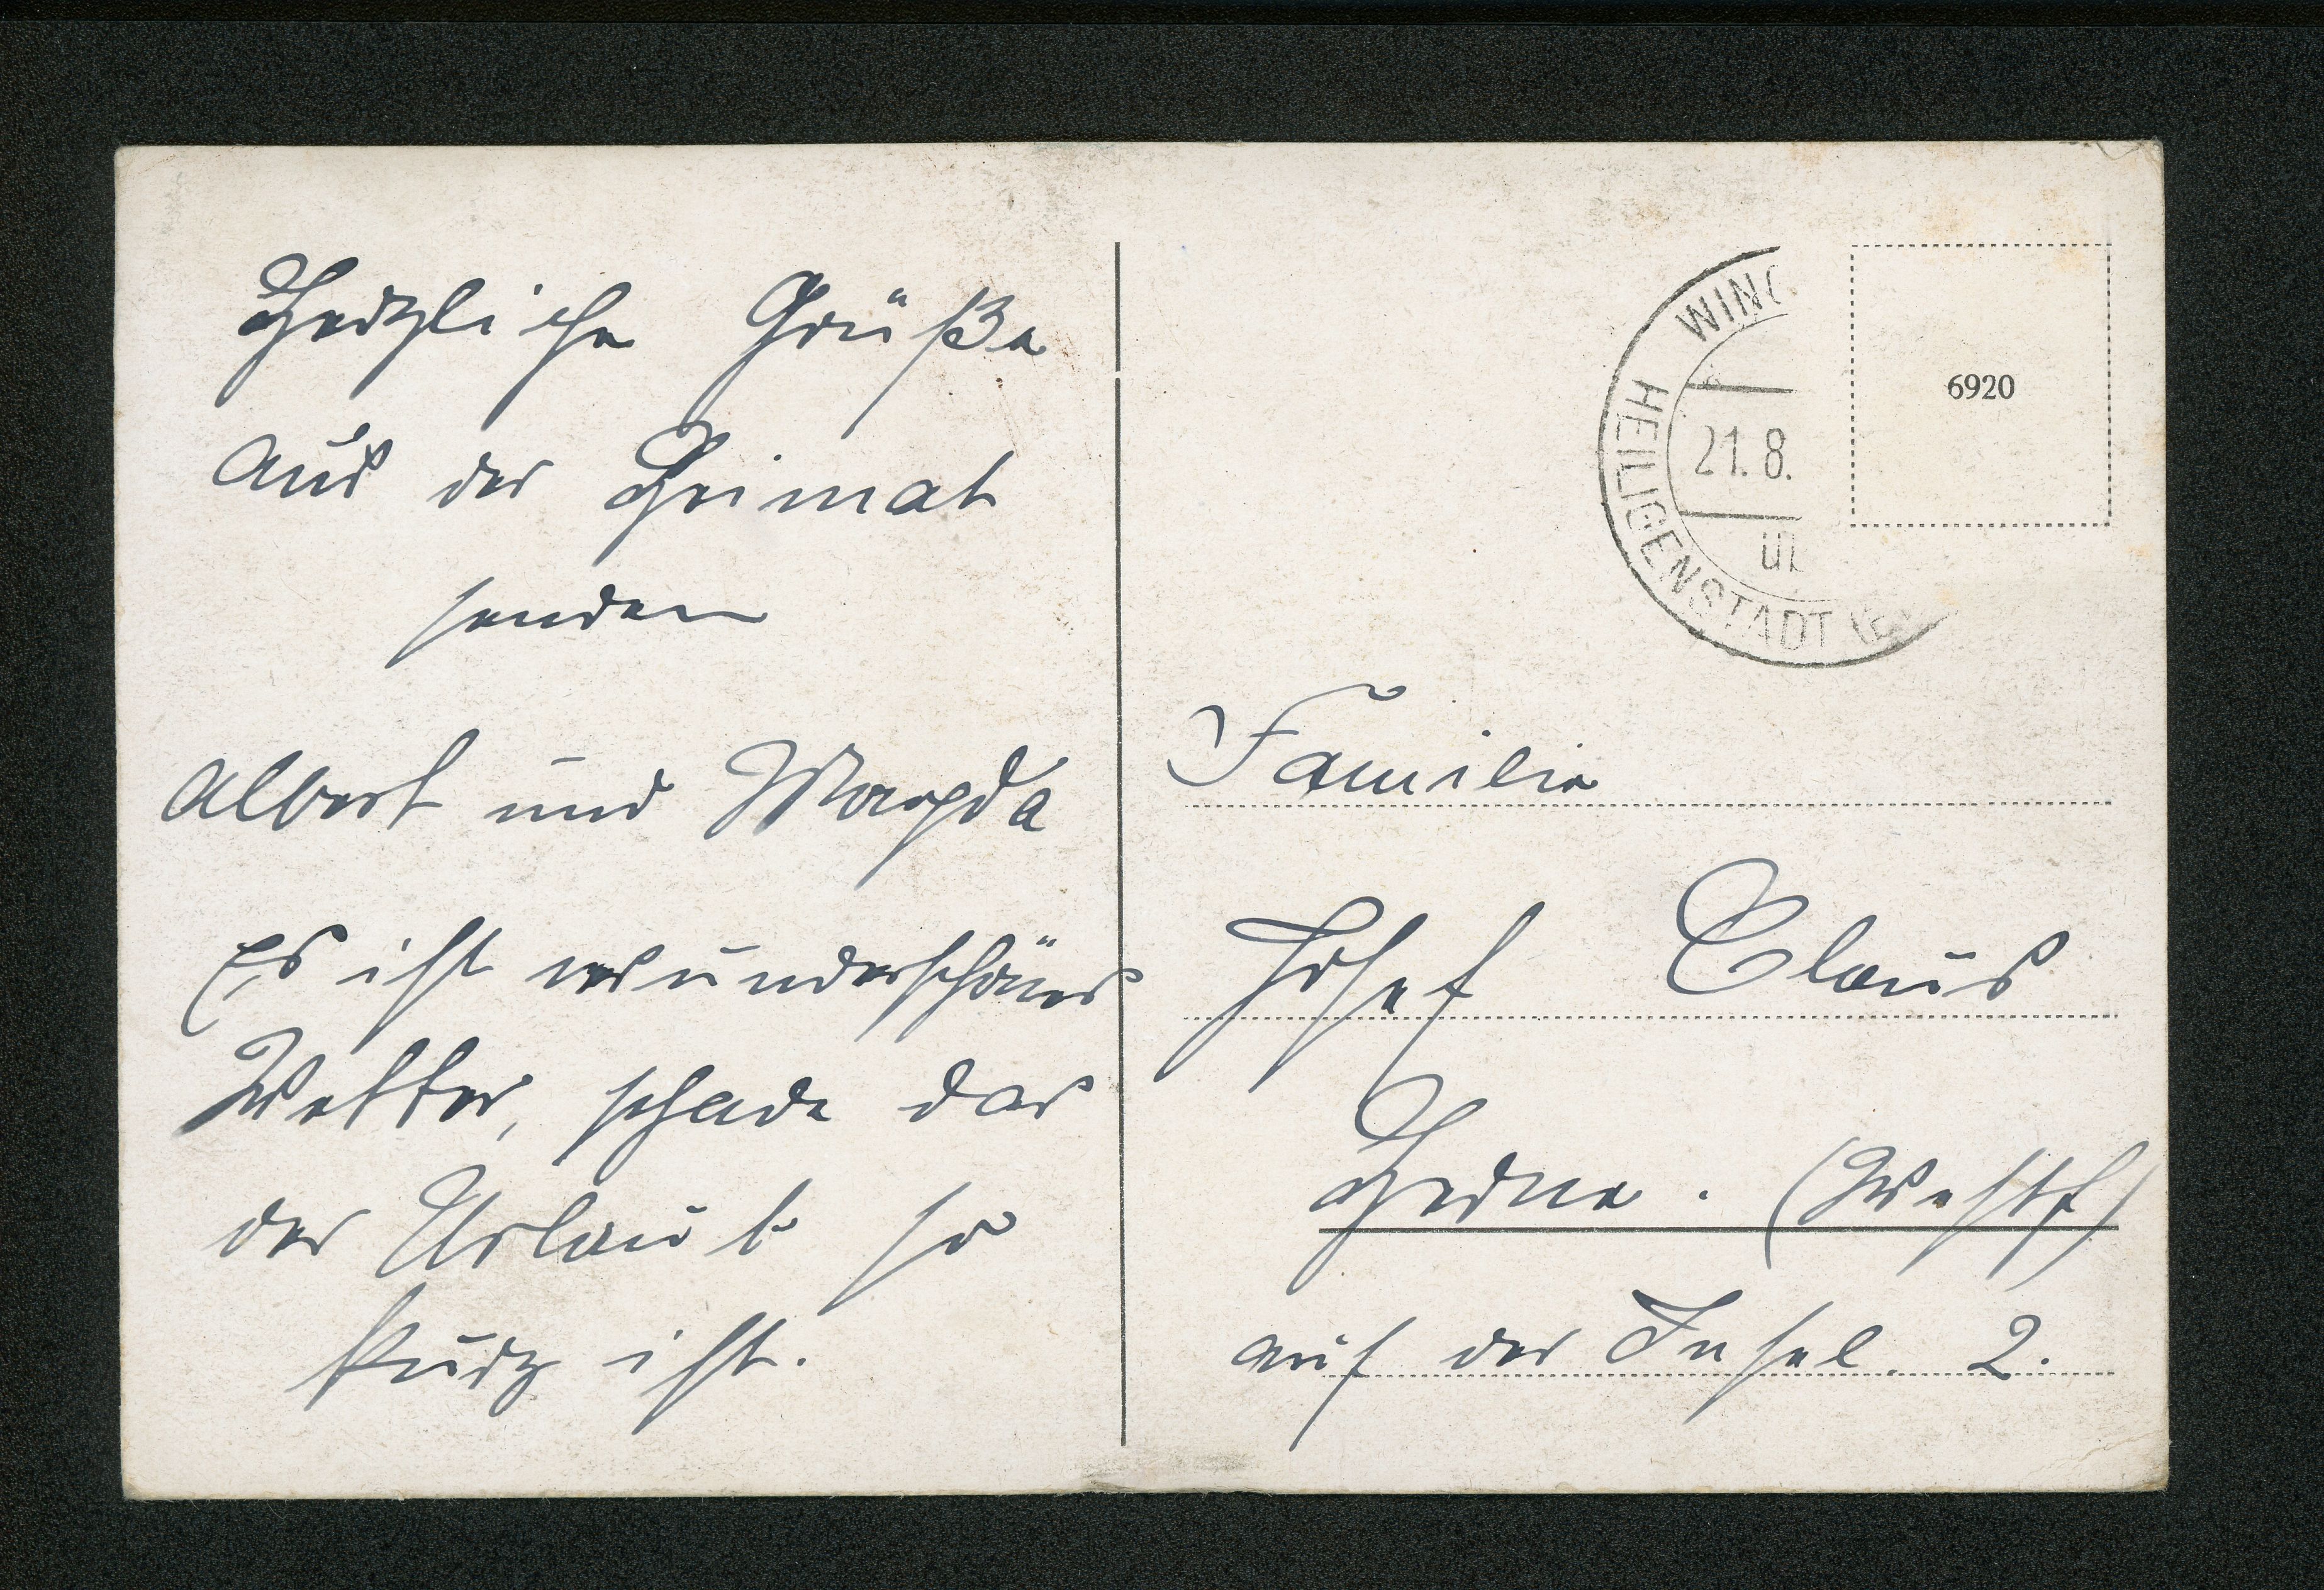 Herzliche Grüße
aus der Heimat
senden
Albert und Magda
Es ist wunderschönes
Wetter, schade das
der Urlaub so
kurz ist.
WING
HEILIGENSTADT
21.8.
6920
Familie
Josef Claus
Herne. (Westf)
auf der Insel. 2.